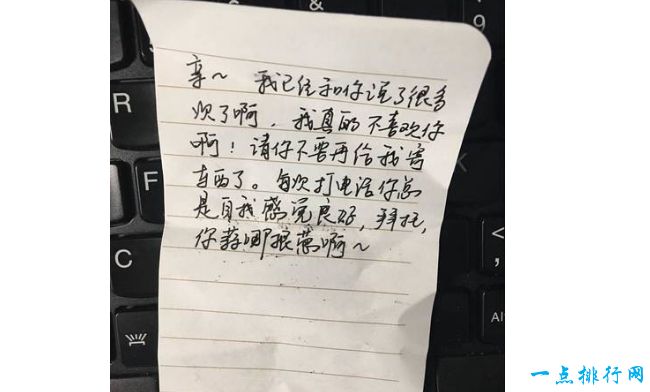 &
9
R
F
C
<
,
Al
亲~ 我已经和你说了很多
次了啊，我真的不喜欢你
啊！请你不要再给我寄
东西了。每次打电话你总
是自我感觉良好，拜托，
你蒜哪根葱啊~
一点排行网